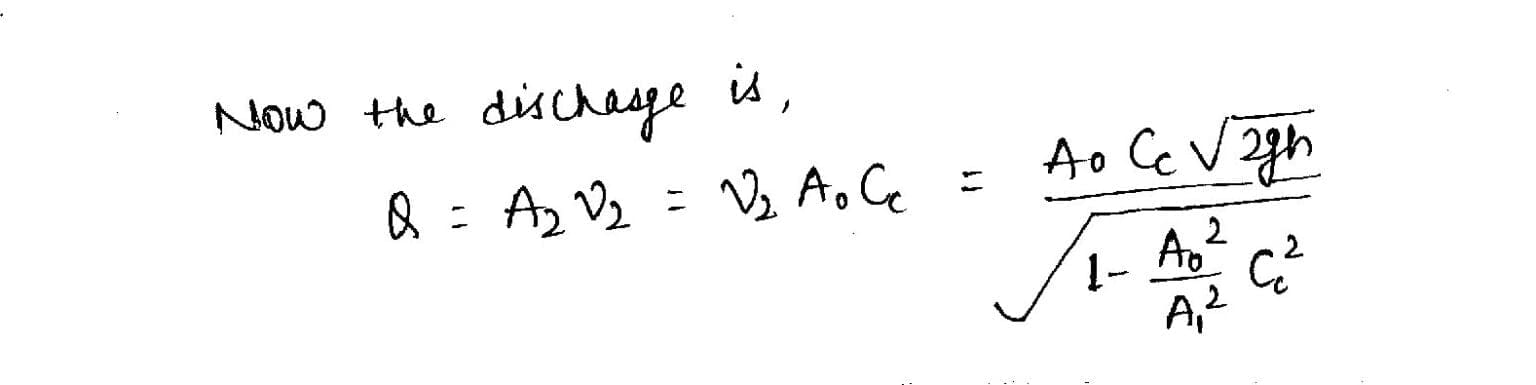 Now the discharge is,
Q = A₂ V₂ = V₂ A₀ C_c = A₀ C_c √(2gh) / √(1 - (A₀² / A₁²) C_c²)